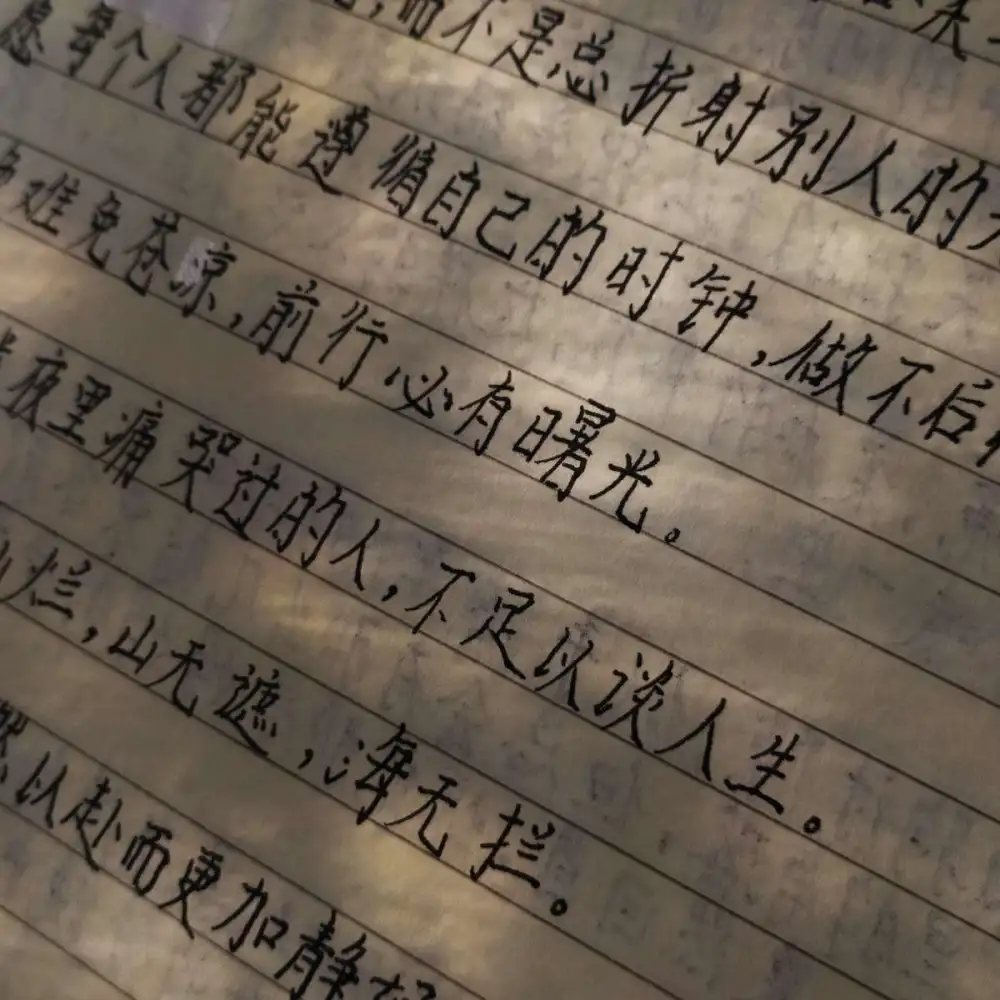 ,而不是总折射别人的
愿每个人都能遵循自己的时钟,做不后
难免苍凉,前行必有曙光。
夜里痛哭过的人,不足以谈人生。
烂,山无遮,海无拦。
以赴而更加静好